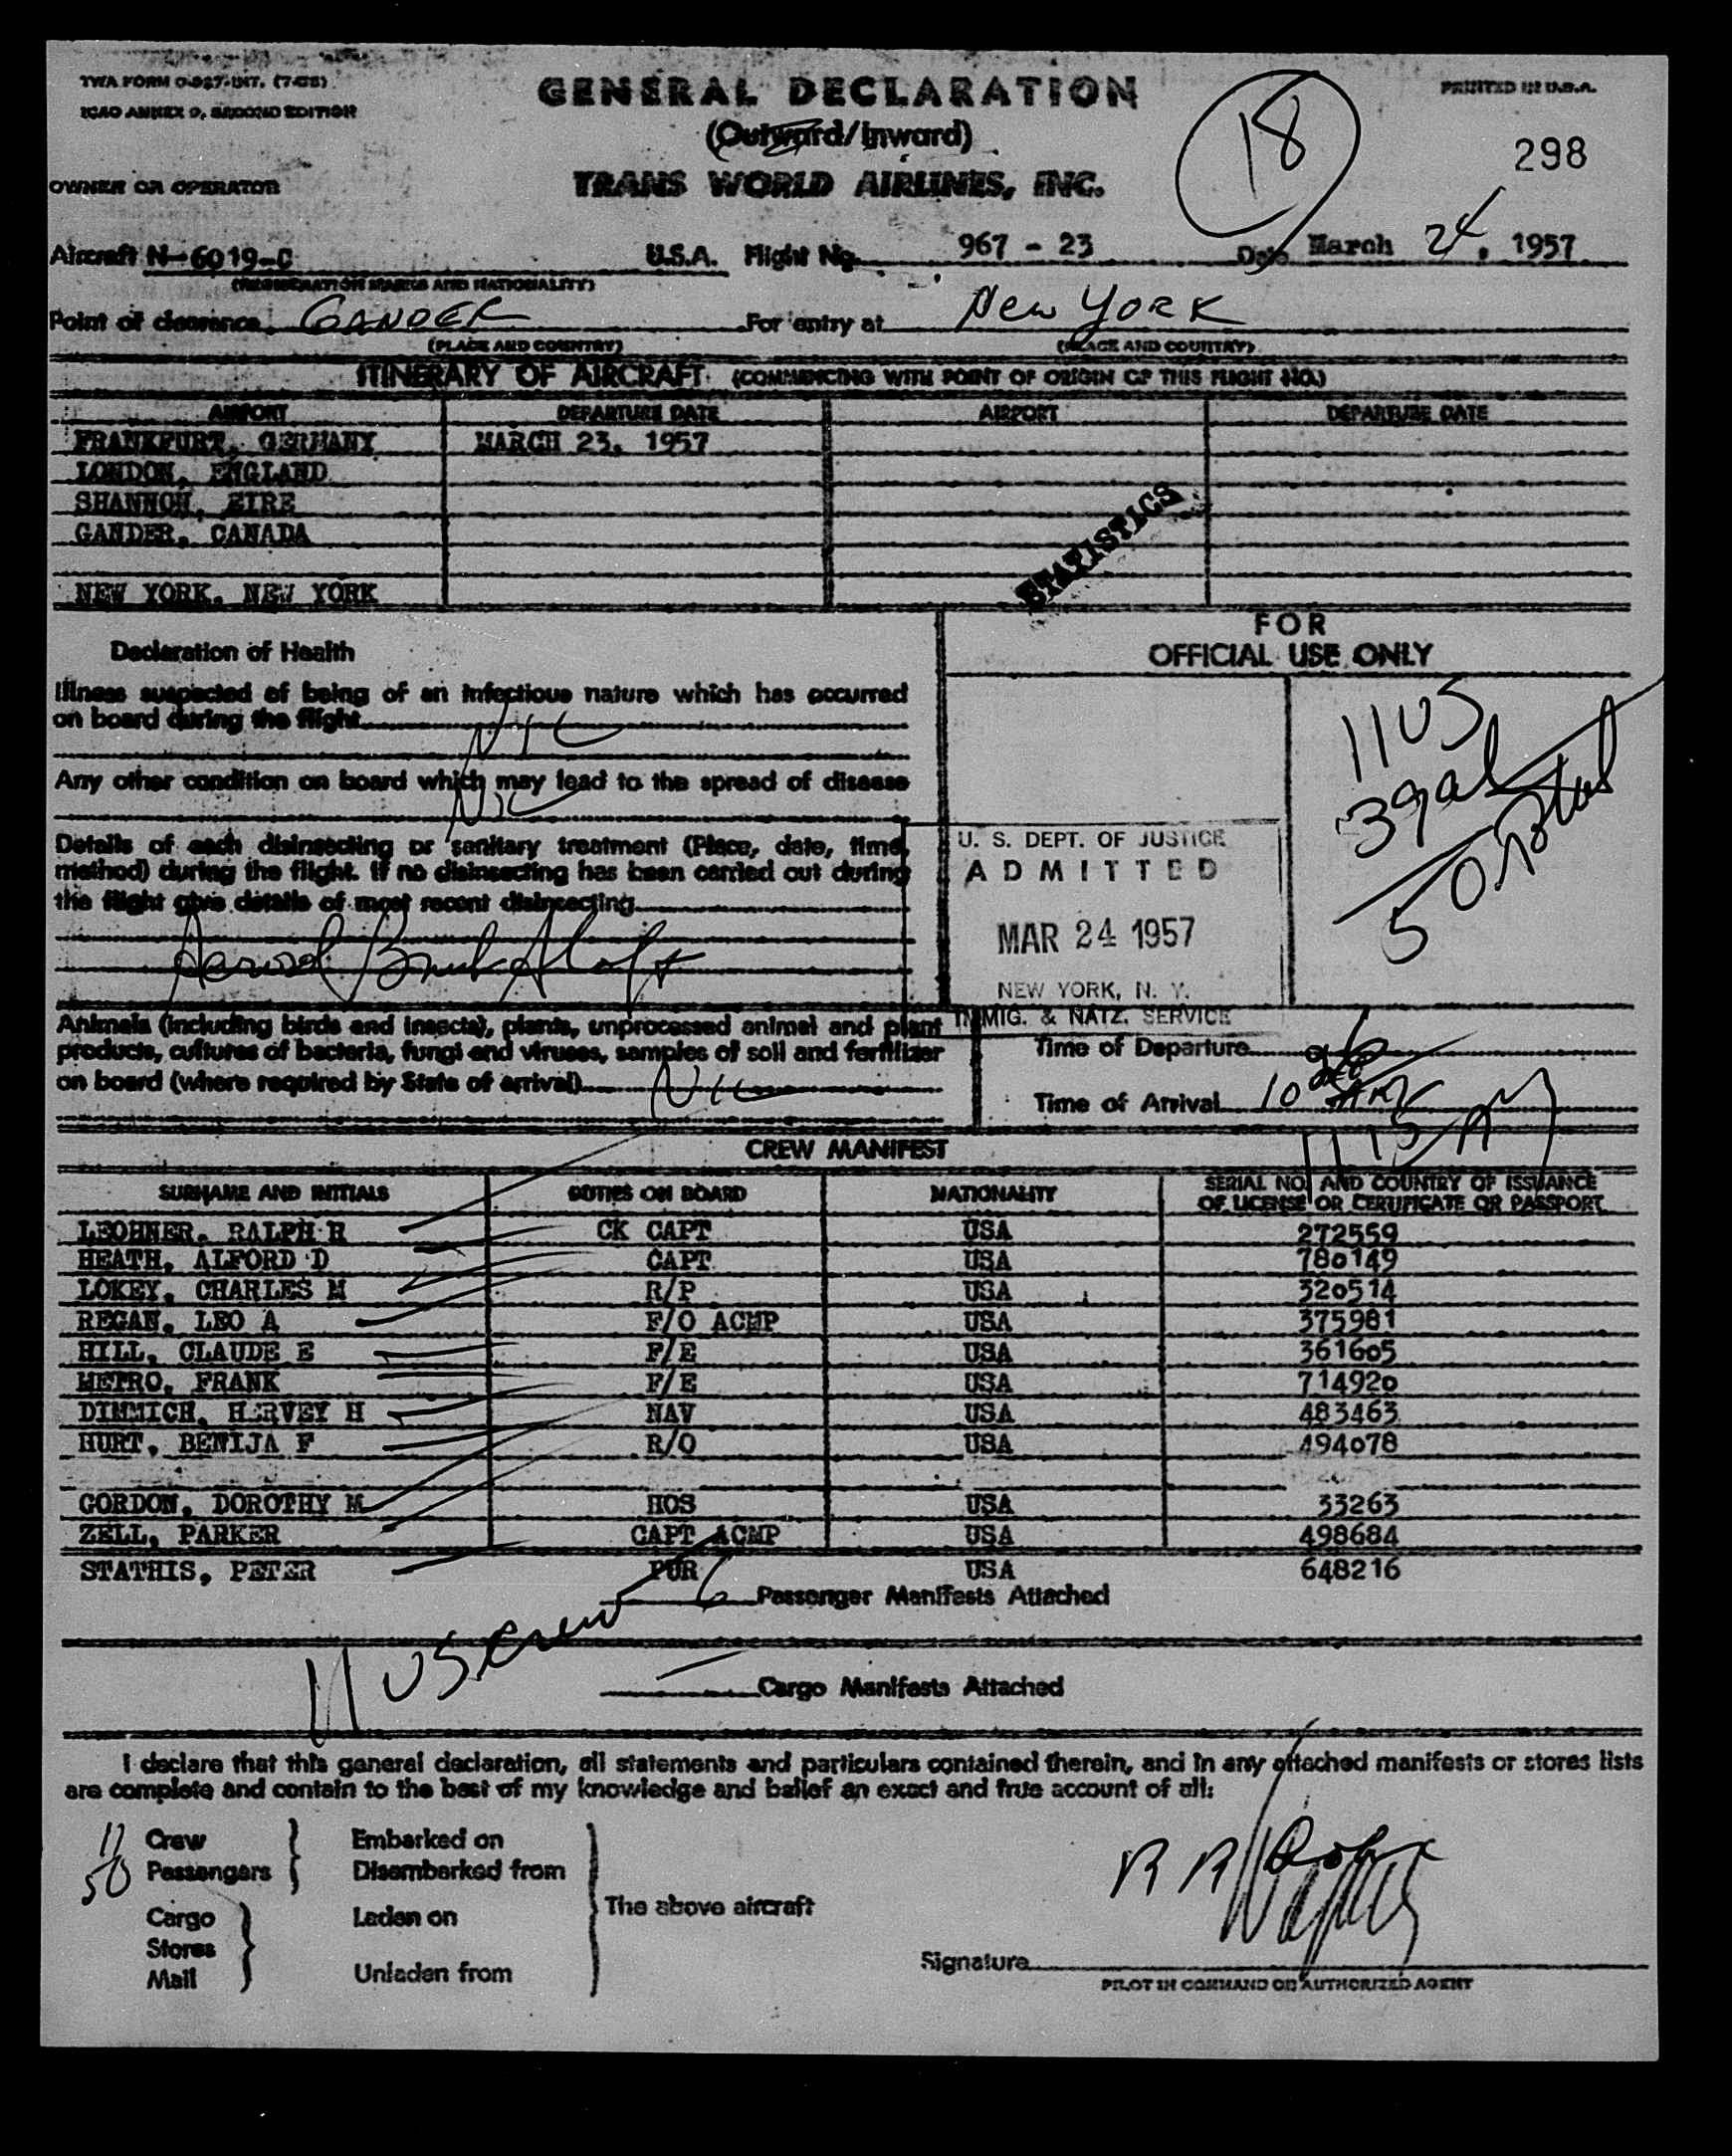 TWA FORM O-927-INT. (7-55)
ICAO ANNEX 9, SECOND EDITION
GENERAL DECLARATION
(Outward/Inward)
TRANS WORLD AIRLINES, INC.
OWNER OR OPERATOR
18
PRINTED IN U.S.A.
298
Aircraft N-6019-C U.S.A. Flight No. 967 - 23 Date March 24, 1957
(REGISTRATION MARKS AND NATIONALITY)
Point of clearance GANDER For entry at New YORK
(PLACE AND COUNTRY) (PLACE AND COUNTRY)
ITINERARY OF AIRCRAFT (COMMENCING WITH POINT OF ORIGIN OF THIS FLIGHT NO.)
AIRPORT DEPARTURE DATE AIRPORT DEPARTURE DATE
FRANKFURT, GERMANY MARCH 23, 1957
LONDON, ENGLAND
SHANNON, EIRE
GANDER, CANADA
NEW YORK, NEW YORK
STATISTICS
FOR
OFFICIAL USE ONLY
Declaration of Health
Illness suspected of being of an infectious nature which has occurred
on board during the flight NIL
Any other condition on board which may lead to the spread of disease
NIL
Details of each disinsecting or sanitary treatment (Place, date, time,
method) during the flight. If no disinsecting has been carried out during
the flight give details of most recent disinsecting
Aerosol Bomb Aloft
11 US
39 al
50
U. S. DEPT. OF JUSTICE
ADMITTED
MAR 24 1957
NEW YORK, N. Y.
IMMIG. & NATZ. SERVICE
Animals (including birds and insects), plants, unprocessed animal and plant
products, cultures of bacteria, fungi and viruses, samples of soil and fertilizer
on board (where required by State of arrival) NIL
Time of Departure
Time of Arrival 10
1115 A
CREW MANIFEST
SURNAME AND INITIALS DUTIES ON BOARD NATIONALITY SERIAL NO. AND COUNTRY OF ISSUANCE
OF LICENSE OR CERTIFICATE OR PASSPORT
LEOHNER, RALPH H CK CAPT USA 272559
HEATH, ALFORD D CAPT USA 780149
LOKEY, CHARLES M R/P USA 320514
REGAN, LEO A F/O ACMP USA 375981
HILL, CLAUDE E F/E USA 361605
METRO, FRANK F/E USA 714920
DIMMICH, HARVEY H NAV USA 483463
HURT, BENIJA F R/O USA 494078
GORDON, DOROTHY M HOS USA 33263
ZELL, PARKER CAPT ACMP USA 498684
STATHIS, PETER PUR USA 648216
6 Passenger Manifests Attached
11 US Crew
Cargo Manifests Attached
I declare that this general declaration, all statements and particulars contained therein, and in any attached manifests or stores lists
are complete and contain to the best of my knowledge and belief an exact and true account of all:
11 Crew Embarked on
50 Passengers Disembarked from
The above aircraft
Cargo Laden on
Stores
Mail Unladen from
Signature
PILOT IN COMMAND OR AUTHORIZED AGENT